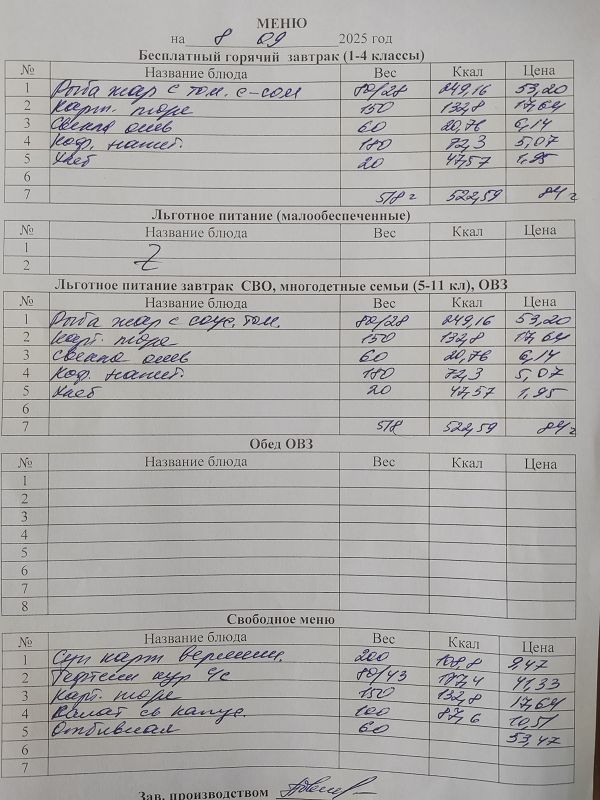 МЕНЮ
на 8 09 2025 год
Бесплатный горячий завтрак (1-4 классы)
№ Название блюда Вес Ккал Цена
1 Рыба жар с том. с-сом 80/28 249,16 53,20
2 Карт. пюре 150 132,8 17,64
3 Свекла отв 60 20,76 6,14
4 Коф. напит. 180 72,3 5,07
5 Хлеб 20 47,57 1,95
6
7 518 г 522,59 84 г
Льготное питание (малообеспеченные)
№ Название блюда Вес Ккал Цена
1
2
Льготное питание завтрак СВО, многодетные семьи (5-11 кл), ОВЗ
№ Название блюда Вес Ккал Цена
1 Рыба жар с соус. том. 80/28 249,16 53,20
2 Карт. пюре 150 132,8 17,64
3 Свекла отв 60 20,76 6,14
4 Коф. напит. 180 72,3 5,07
5 Хлеб 20 47,57 1,95
6
7 518 522,59 84 г
Обед ОВЗ
№ Название блюда Вес Ккал Цена
1
2
3
4
5
6
7
8
Свободное меню
№ Название блюда Вес Ккал Цена
1 Суп карт вермиш. 200 108,8 9,47
2 Тефтели кур 80/43 117,4 41,33
3 Карт. пюре 150 132,8 17,64
4 Салат св капус. 100 87,6 10,51
5 Отбивная 60 53,47
6
7
Зав. производством